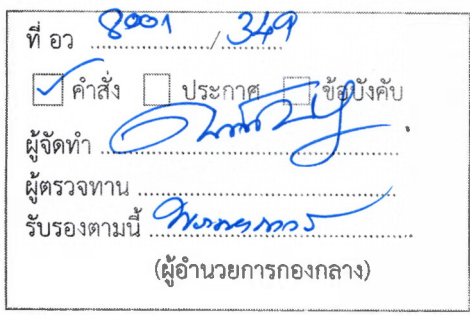 ที่ อว 8001 / 349
☑ คำสั่ง ☐ ประกาศ ☐ ข้อบังคับ
ผู้จัดทำ
ผู้ตรวจทาน
รับรองตามนี้
(ผู้อำนวยการกองกลาง)